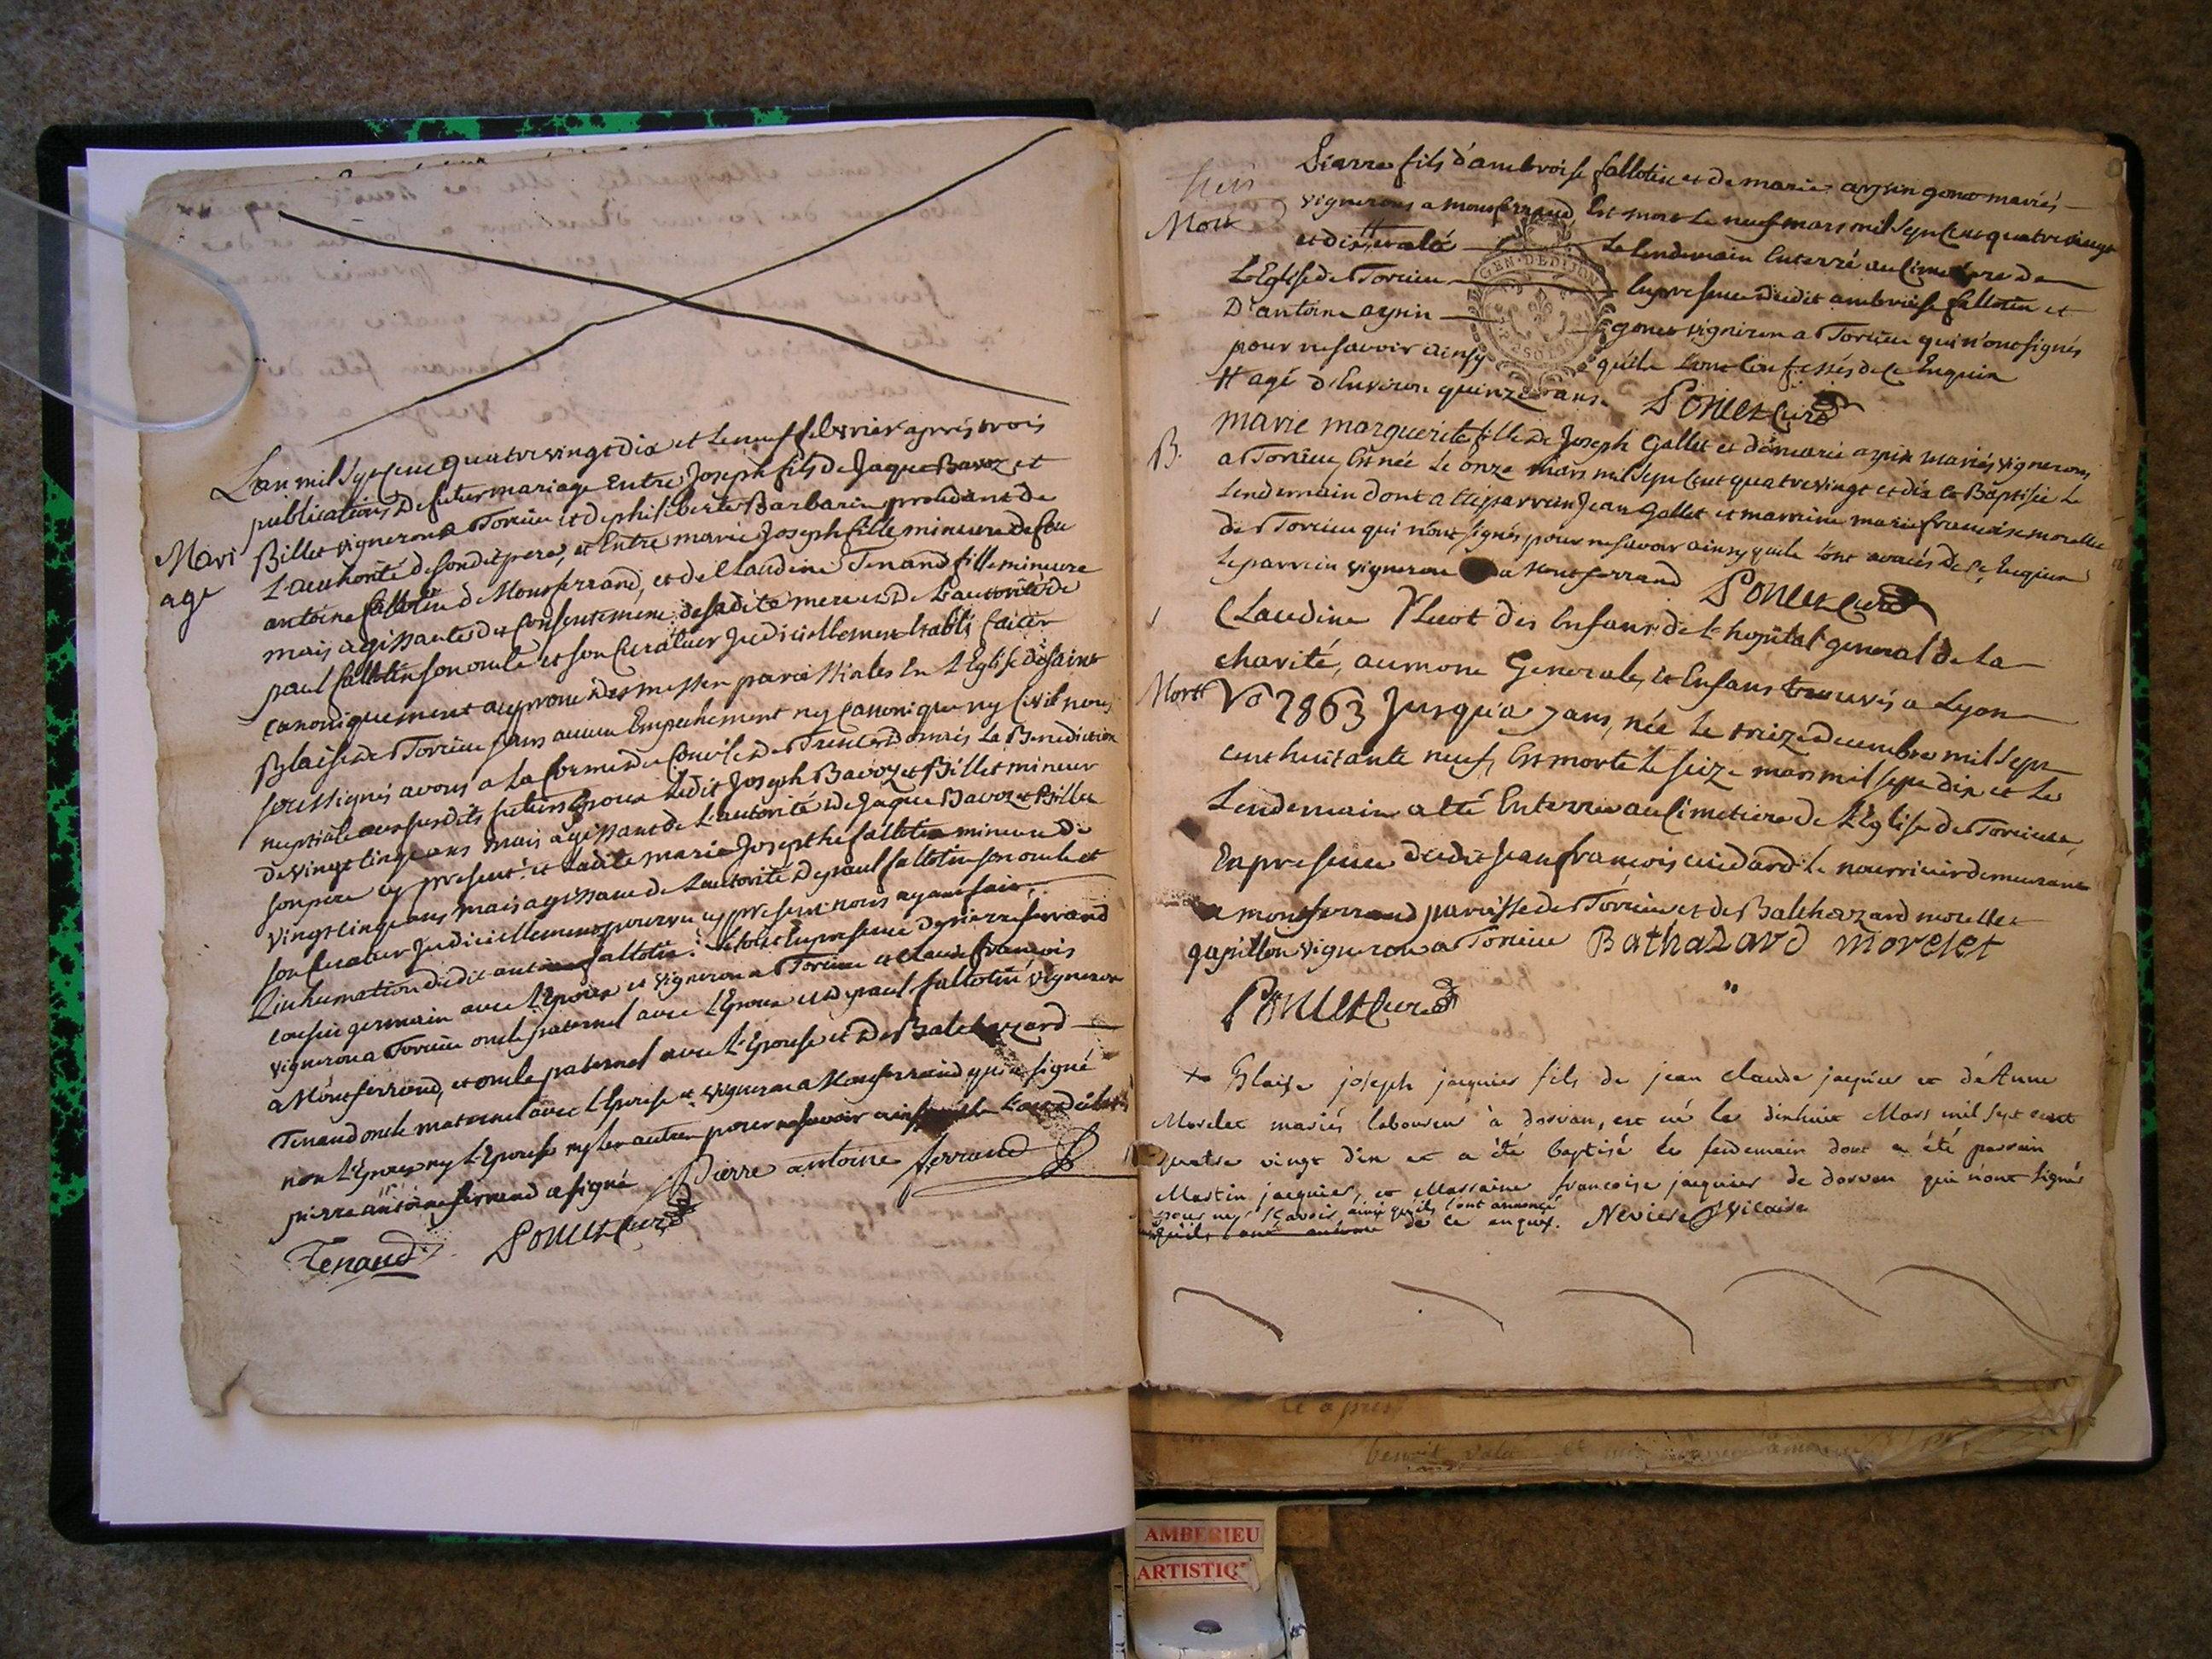 Mari
age
L'an mil sept cent quatre vingt dix et le neuf febvrier après trois
publications de futur mariage Entre Joseph fils de Jaque Bavoz et
Billet vigneron a Torcieu et de philiberte Barbarin procedant de
L'authorité de son dit pere, et Entre marie Joseph fille mineure de feu
antoine fallotin de Monferrand, et de Claudine Tenand fille mineure
mais agissante du Consentement de sadite mere et de L'autorité de
paul fallotin son oncle et son Curateur Judiciellement Etabli
Canoniquement au prone des messes paroissiales En L'Eglise de saint
Blaise de Torcieu sans aucun Empechement ny Canonique ny Civil nous
soussignés avons a la forme du Concile de Trente donnés La Benediction
nuptiale aux susdits futurs Epoux Ledit Joseph Bavoz et Billet mineur
de vingt cinq ans mais agissant de L'autorité de Jaque Bavoz et Billet
son pere cy present: et ladite marie Josepthe fallotin mineure de
vingt cinq ans mais agissant de L'autorité de paul fallotin son oncle et
son Curateur Judiciellement pourvu cy present nous ayant fait
L'inhumation dudit antoine fallotin: Le tout En presence de pierre ferrand
cousin germain avec L'Epoux et vigneron a Torcieu et Claude françois
vigneron a Torcieu oncle paternel avec L'Epoux et de paul fallotin vigneron
a Monferrand, et oncle paternel avec L'Epouse et de Balthazard
Tenand oncle maternel avec L'Epouse et vigneron a Monferrand qui a signé
non L'Epoux ny L'Epouse ny les autres pour ne savoir ainsy
pierre antoine ferrand a signé
Pierre antoine ferrand
Tenand
Poncet Curé
Mort
Pierre fils d'ambroise fallotin et de marie aynin gonet mariés
vignerons a monferrand, Est mort Le neuf mars mil sept Cent quatre vingt
et dix, Le lendemain Enterré au Cimetière de
L'Eglise de Torcieu En presence dudit ambroise fallotin et
D'antoine aynin gonet vigniron a Torcieu qui n'ont signés
pour ne savoir ainsy qu'ils L'ont Confessés de Ce Enquis
# agé d'Environ quinze ans. Poncet Curé
B.
marie marguerite fille de Joseph Gallet et de marie aynin mariés vignerons
a Torcieu, Est née Le onze mars mil sept Cent quatre vingt et dix et Baptisée Le
Lendemain dont a Eté parrein Jean Gallet et marreine marie francoise morellet
de Torcieu qui n'ont signés pour ne savoir ainsy qu'ils L'ont avoués de Ce Enquis
Le parrein vigneron a Montferrand Poncet Curé
Mort
Claudine des Enfans de L'hopital general de La
charité, aumone Generale, et Enfans trouvés a Lyon
No 2863 Jusqu'a 7 ans, née Le treize decembre mil sept
cent huitante neuf, Est morte Le seize mars mil sept dix et Le
Lendemain a Eté Enterrée au Cimetiere de L'Eglise de Torcieu
En presence dudit Jean françois Le nourricier demeurant
a monferrand paroisse de Torcieu et de Balthazard morellet
papillon vigneron a Torcieu Bathazard morelet
Poncet Curé
+ Blaise joseph jacquier fils de jean claude jacquier et d'Anne
Morelet mariés laboureur à dorvan, est né le dixhuit Mars mil sept cent
quatre vingt dix et a été baptisé le lendemain dont a été parrain
Martin jacquier, et Marraine francoise jacquier de dorvan qui n'ont signés
pour ne sçavoir ainsi qu'ils l'ont annoncé
qu'ils l'ont de ce enquis. Neviere Vicaire
GEN. DE DIJON
AMBERIEU
ARTISTIQ